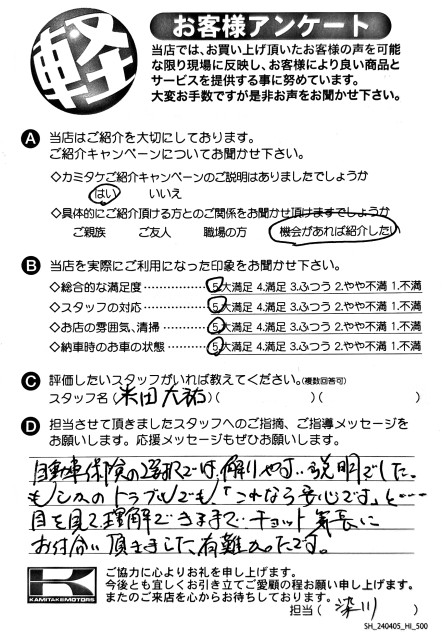 軽
お客様アンケート
当店では、お買い上げ頂いたお客様の声を可能
な限り現場に反映し、お客様により良い商品と
サービスを提供する事に努めています。
大変お手数ですが是非お声をお聞かせ下さい。
A 当店はご紹介を大切にしております。
ご紹介キャンペーンについてお聞かせ下さい。
◇カミタケご紹介キャンペーンのご説明はありましたでしょうか
はい いいえ
◇具体的にご紹介頂ける方とのご関係をお聞かせ頂けますでしょうか
ご親族 ご友人 職場の方 機会があれば紹介したい
B 当店を実際にご利用になった印象をお聞かせ下さい。
◇総合的な満足度 5.大満足 4.満足 3.ふつう 2.やや不満 1.不満
◇スタッフの対応 5.大満足 4.満足 3.ふつう 2.やや不満 1.不満
◇お店の雰囲気、清掃 5.大満足 4.満足 3.ふつう 2.やや不満 1.不満
◇納車時のお車の状態 5.大満足 4.満足 3.ふつう 2.やや不満 1.不満
C 評価したいスタッフがいれば教えてください。(複数回答可)
スタッフ名(米田 大祐)( )( )
D 担当させて頂きましたスタッフへのご指摘、ご指導メッセージを
お願いします。応援メッセージもぜひお願いします。
自動車保険の選択では、解りやすい説明でした。
もしものトラブルでも「これなら安心です」と…
目を見て理解できるまで チョット 気長に
お付合い頂きました、有難かったです。
K
KAMITAKEMOTORS
ご協力に心よりお礼を申し上げます。
今後とも宜しくお引き立てご愛顧の程お願い申し上げます。
またのご来店を心からお待ちしております。
担当( 染川 )
SH_240405_HI_500